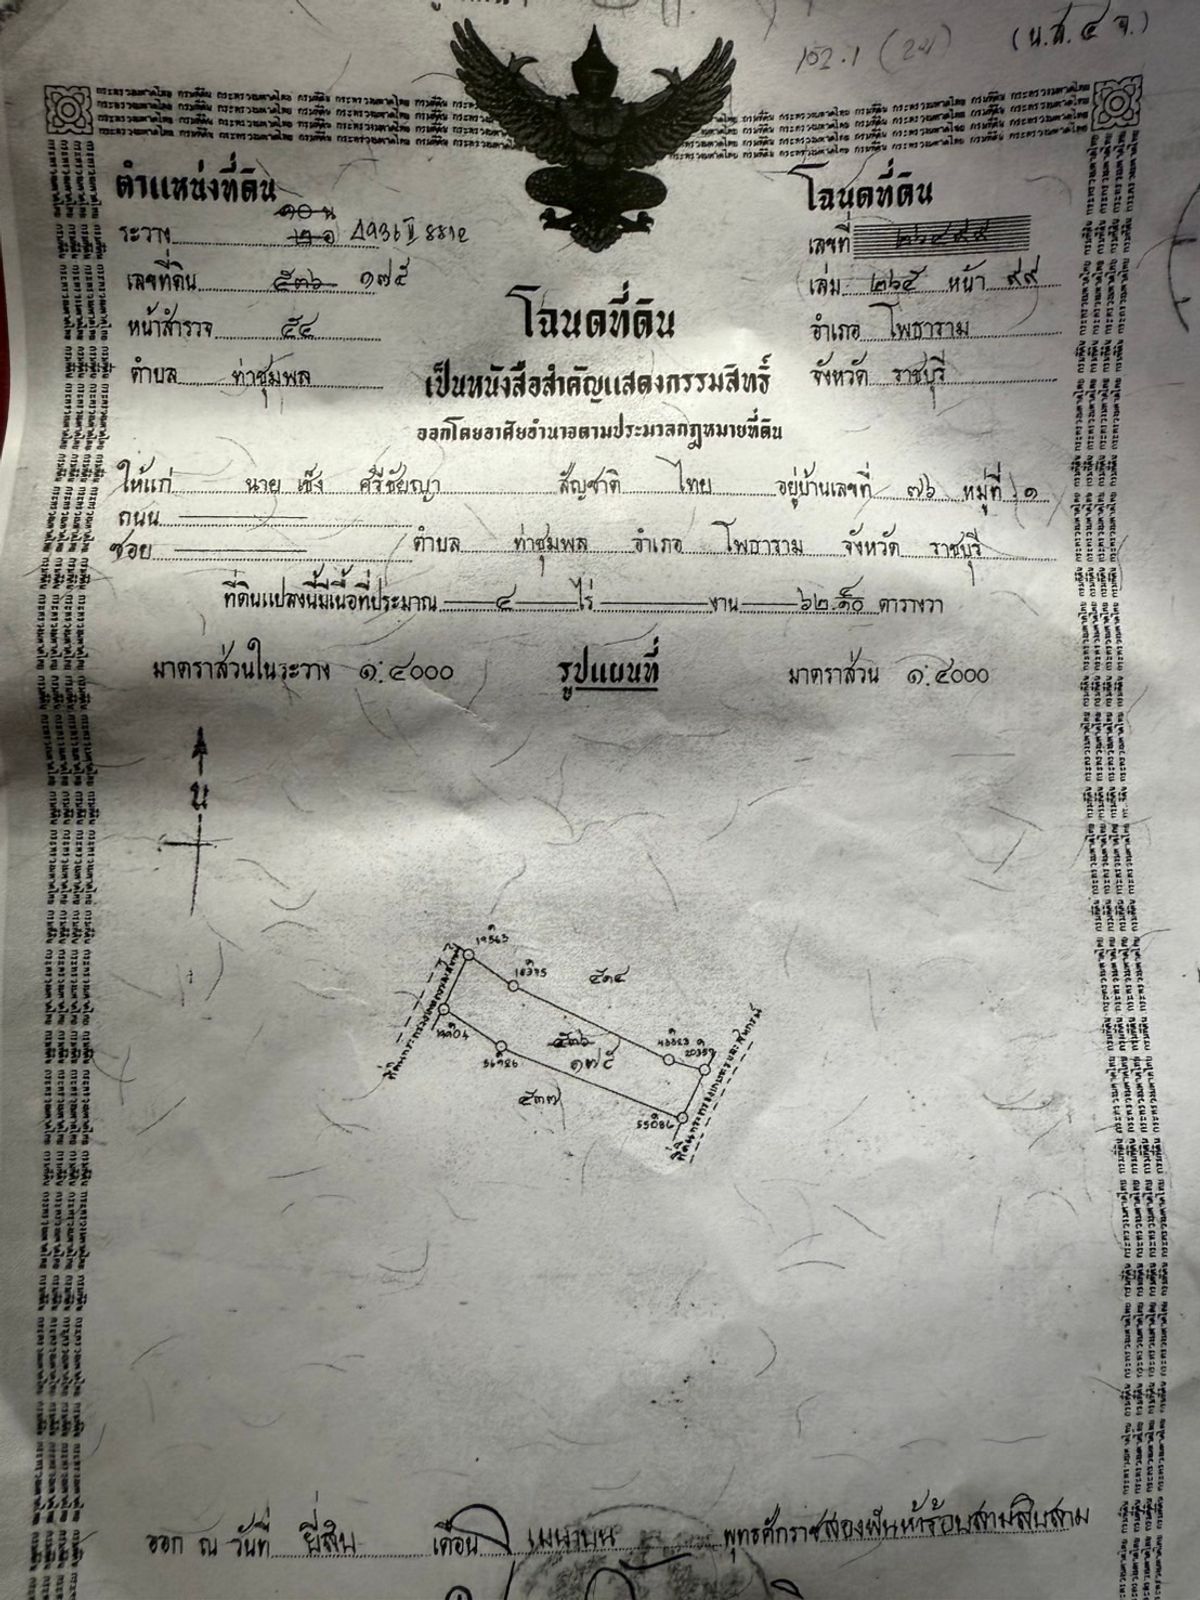 (น.ส. ๔ จ.)
ตำแหน่งที่ดิน
ระวาง ๑๐ น ๒ อ 4936 II 8812
เลขที่ดิน ๕๓๖ ๑๗๕
หน้าสำรวจ ๕๔
ตำบล ท่าชุมพล
โฉนดที่ดิน
เลขที่ ๒๖๔๙๙
เล่ม ๒๖๕ หน้า ๙๙
อำเภอ โพธาราม
จังหวัด ราชบุรี
โฉนดที่ดิน
เป็นหนังสือสำคัญแสดงกรรมสิทธิ์
ออกโดยอาศัยอำนาจตามประมวลกฎหมายที่ดิน
ให้แก่ นาย เซ็ง ศรีชัยญา สัญชาติ ไทย อยู่บ้านเลขที่ ๗๖ หมู่ที่ ๑
ถนน
ซอย ตำบล ท่าชุมพล อำเภอ โพธาราม จังหวัด ราชบุรี
ที่ดินแปลงนี้มีเนื้อที่ประมาณ ๔ ไร่ งาน ๖๒.๑๐ ตารางวา
มาตราส่วนในระวาง ๑:๔๐๐๐ รูปแผนที่ มาตราส่วน ๑:๔๐๐๐
น
๕๑๔
๕๓๖
๑๗๕
๕๓๗
ออก ณ วันที่ ยี่สิบ เดือน เมษายน พุทธศักราชสองพันห้าร้อยสามสิบสาม